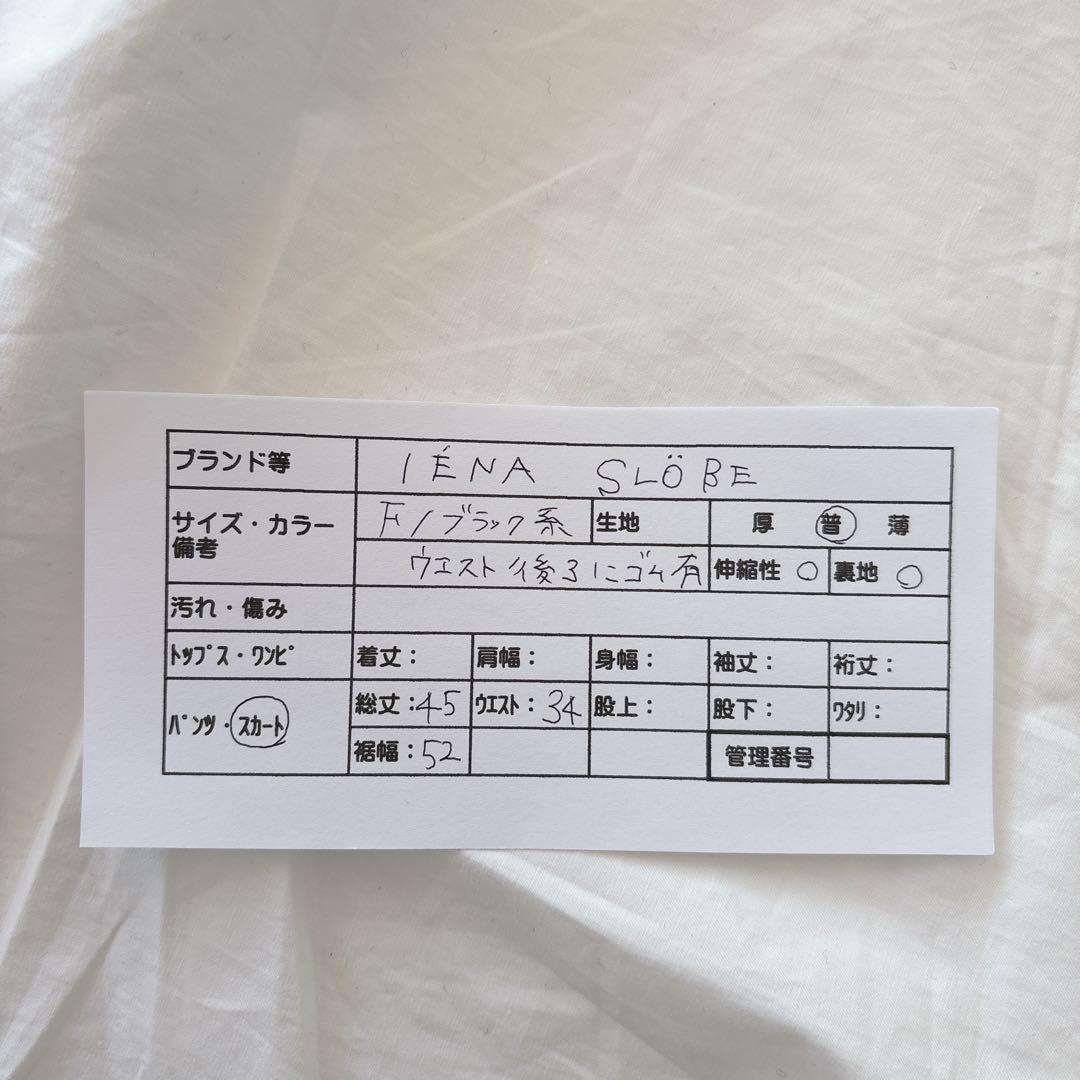 ブランド等 IÉNA SLÖBE
サイズ・カラー F/ブラック系 生地 厚 普 薄
備考 ウエスト後ろにゴム有 伸縮性 ○ 裏地 ○
汚れ・傷み
ﾄｯﾌﾟｽ・ﾜﾝﾋﾟ 着丈： 肩幅： 身幅： 袖丈： 裄丈：
ﾊﾟﾝﾂ・ｽｶｰﾄ 総丈：45 ｳｴｽﾄ：34 股上： 股下： ﾜﾀﾘ：
裾幅：52 管理番号